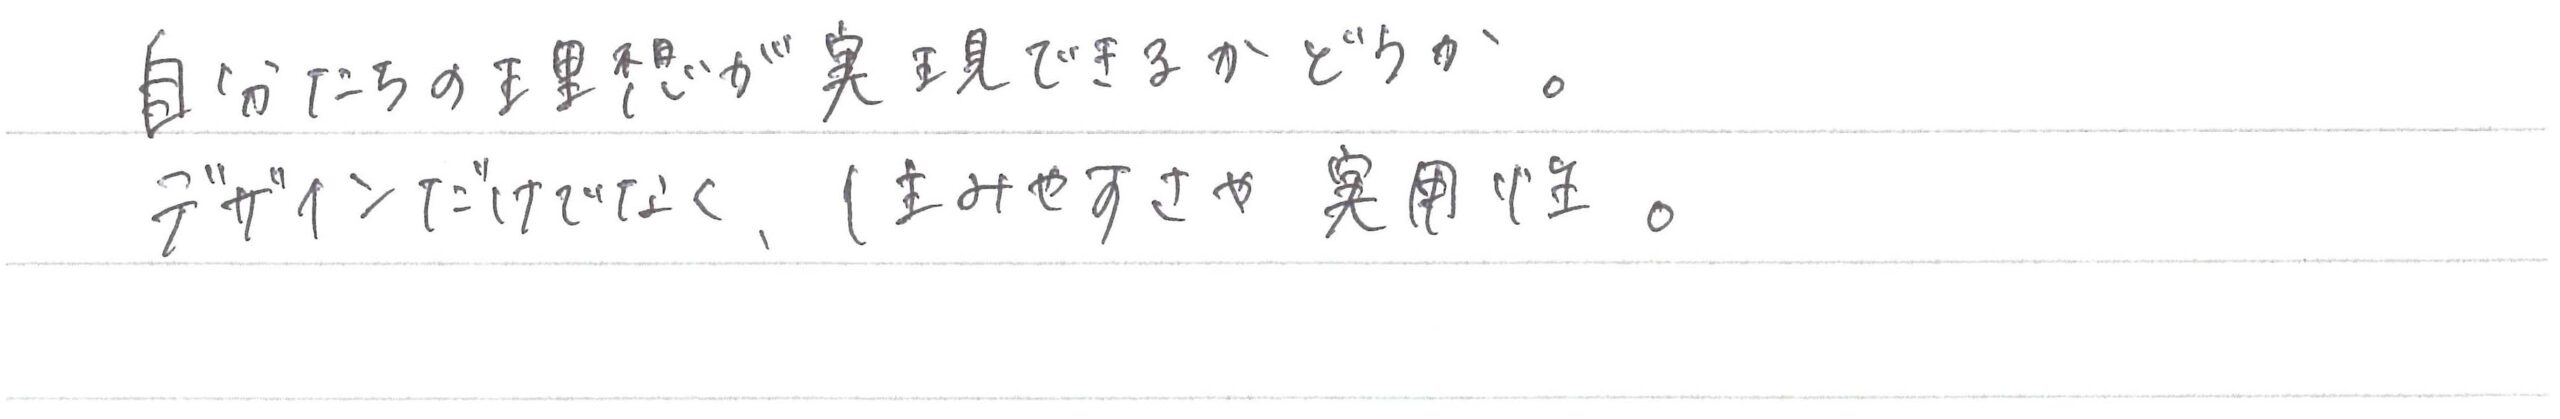 自分たちの理想が実現できるかどうか。
デザインだけでなく、住みやすさや実用性。